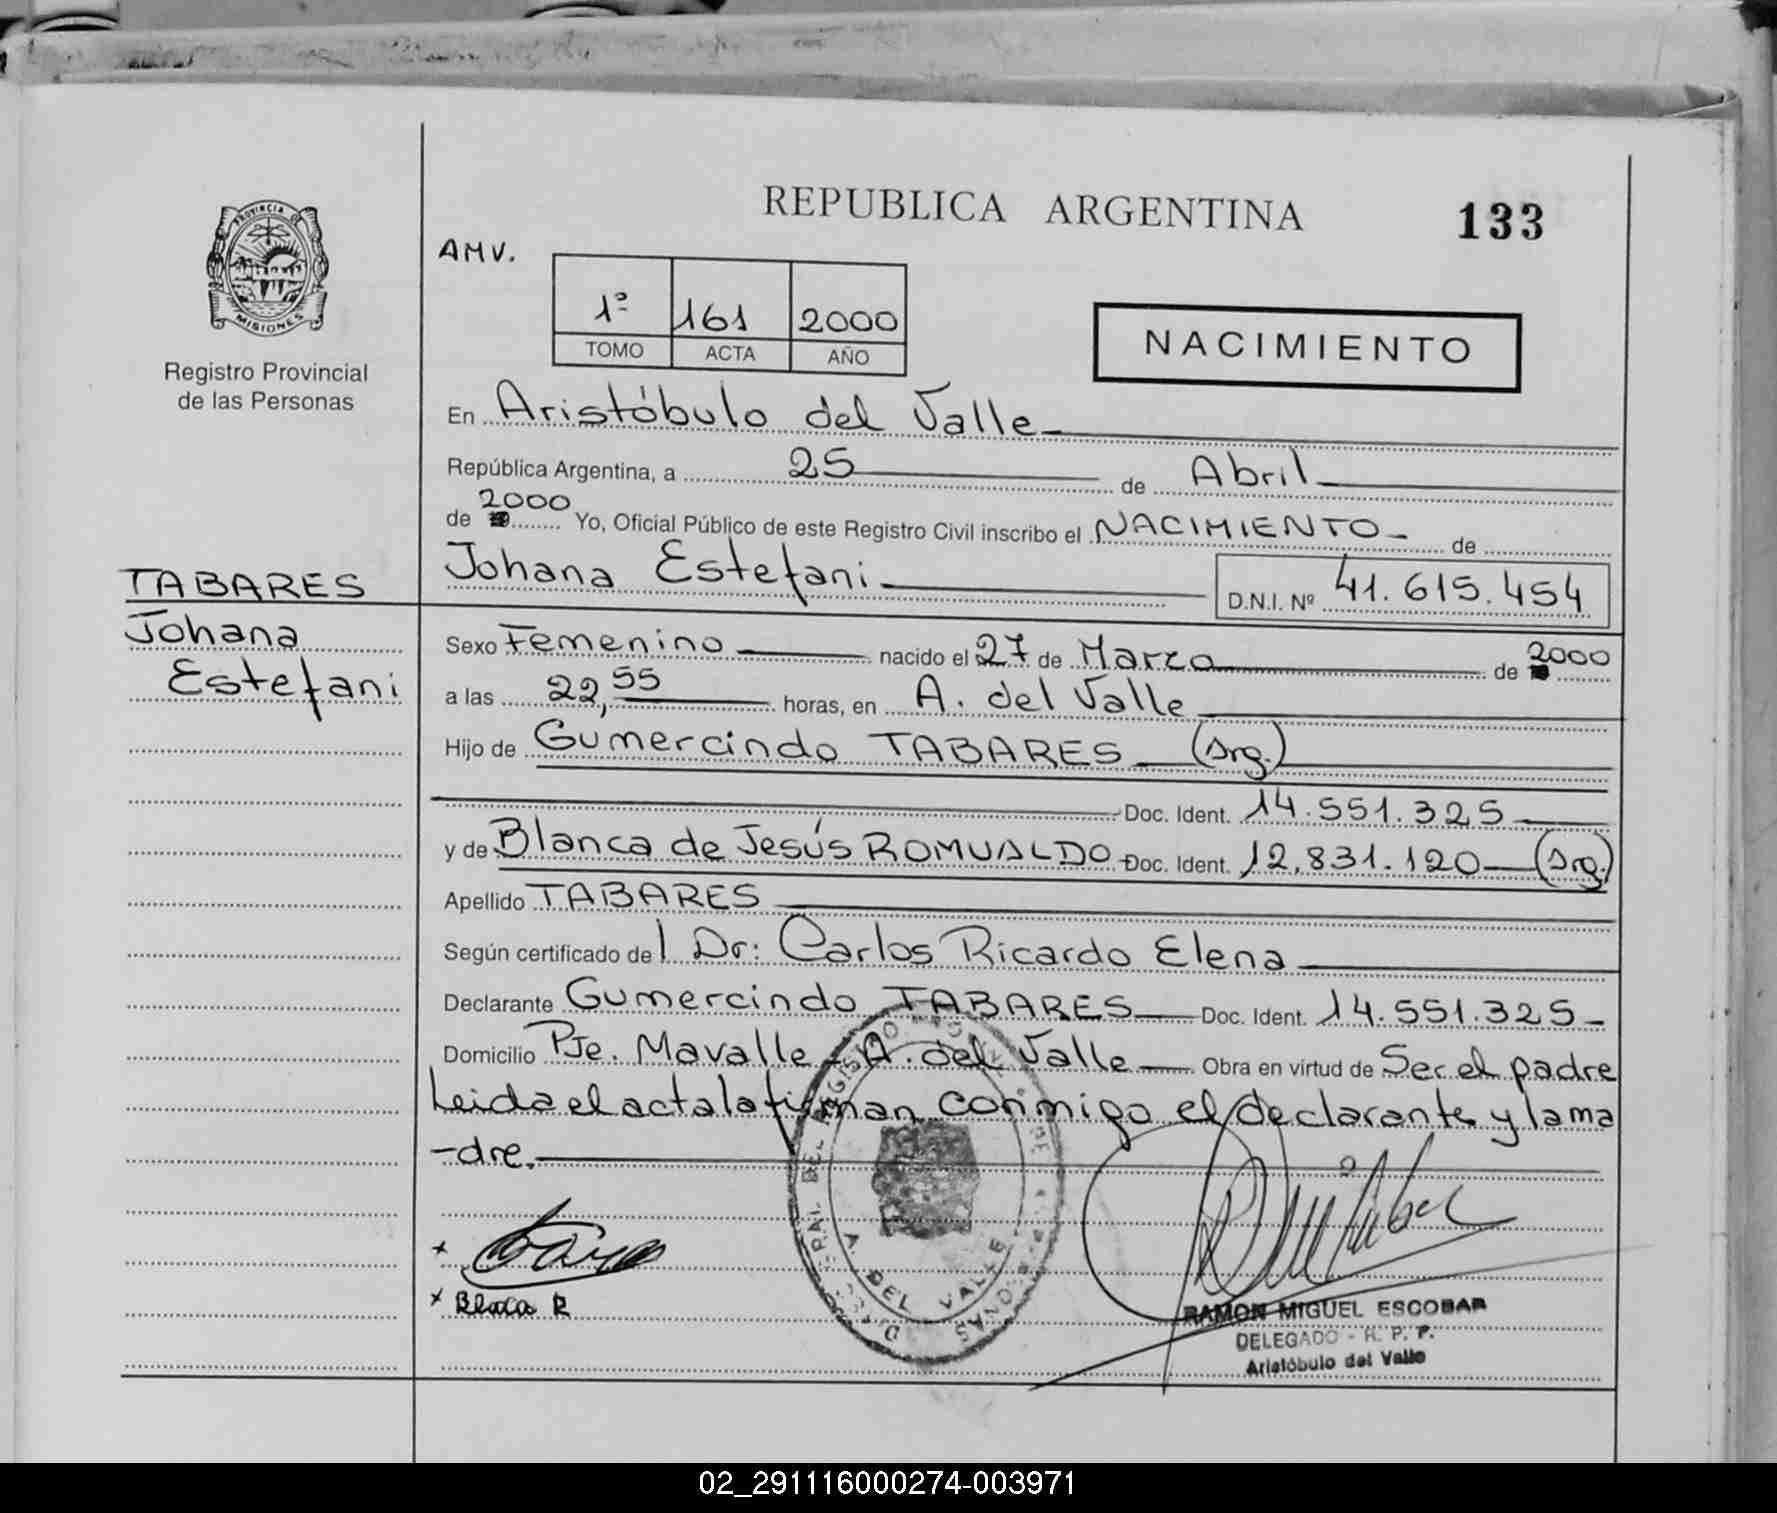 REPUBLICA ARGENTINA
133
AMV.
PROVINCIA DE
MISIONES
Registro Provincial
de las Personas
1º 161 2000
TOMO ACTA AÑO
NACIMIENTO
En Aristóbulo del Valle
República Argentina, a 25 de Abril
de 2000 Yo, Oficial Público de este Registro Civil inscribo el NACIMIENTO de
Johana Estefani
D.N.I. Nº 41.615.454
TABARES
Johana
Estefani
Sexo Femenino nacido el 27 de Marzo de 2000
a las 22,55 horas, en A. del Valle
Hijo de Gumercindo TABARES (Arg.)
Doc. Ident. 14.551.325
y de Blanca de Jesús ROMUALDO Doc. Ident. 12.831.120 (Arg.)
Apellido TABARES
Según certificado del Dr: Carlos Ricardo Elena
Declarante Gumercindo TABARES Doc. Ident. 14.551.325
Domicilio Pje. Mavalle - A. del Valle Obra en virtud de Ser el padre
Leida el acta la firman conmigo el declarante y la ma
-dre.
A. DEL VALLE
x
x Blaca R
RAMON MIGUEL ESCOBAR
DELEGADO - R. P. P.
Aristóbulo del Valle
02_291116000274-003971